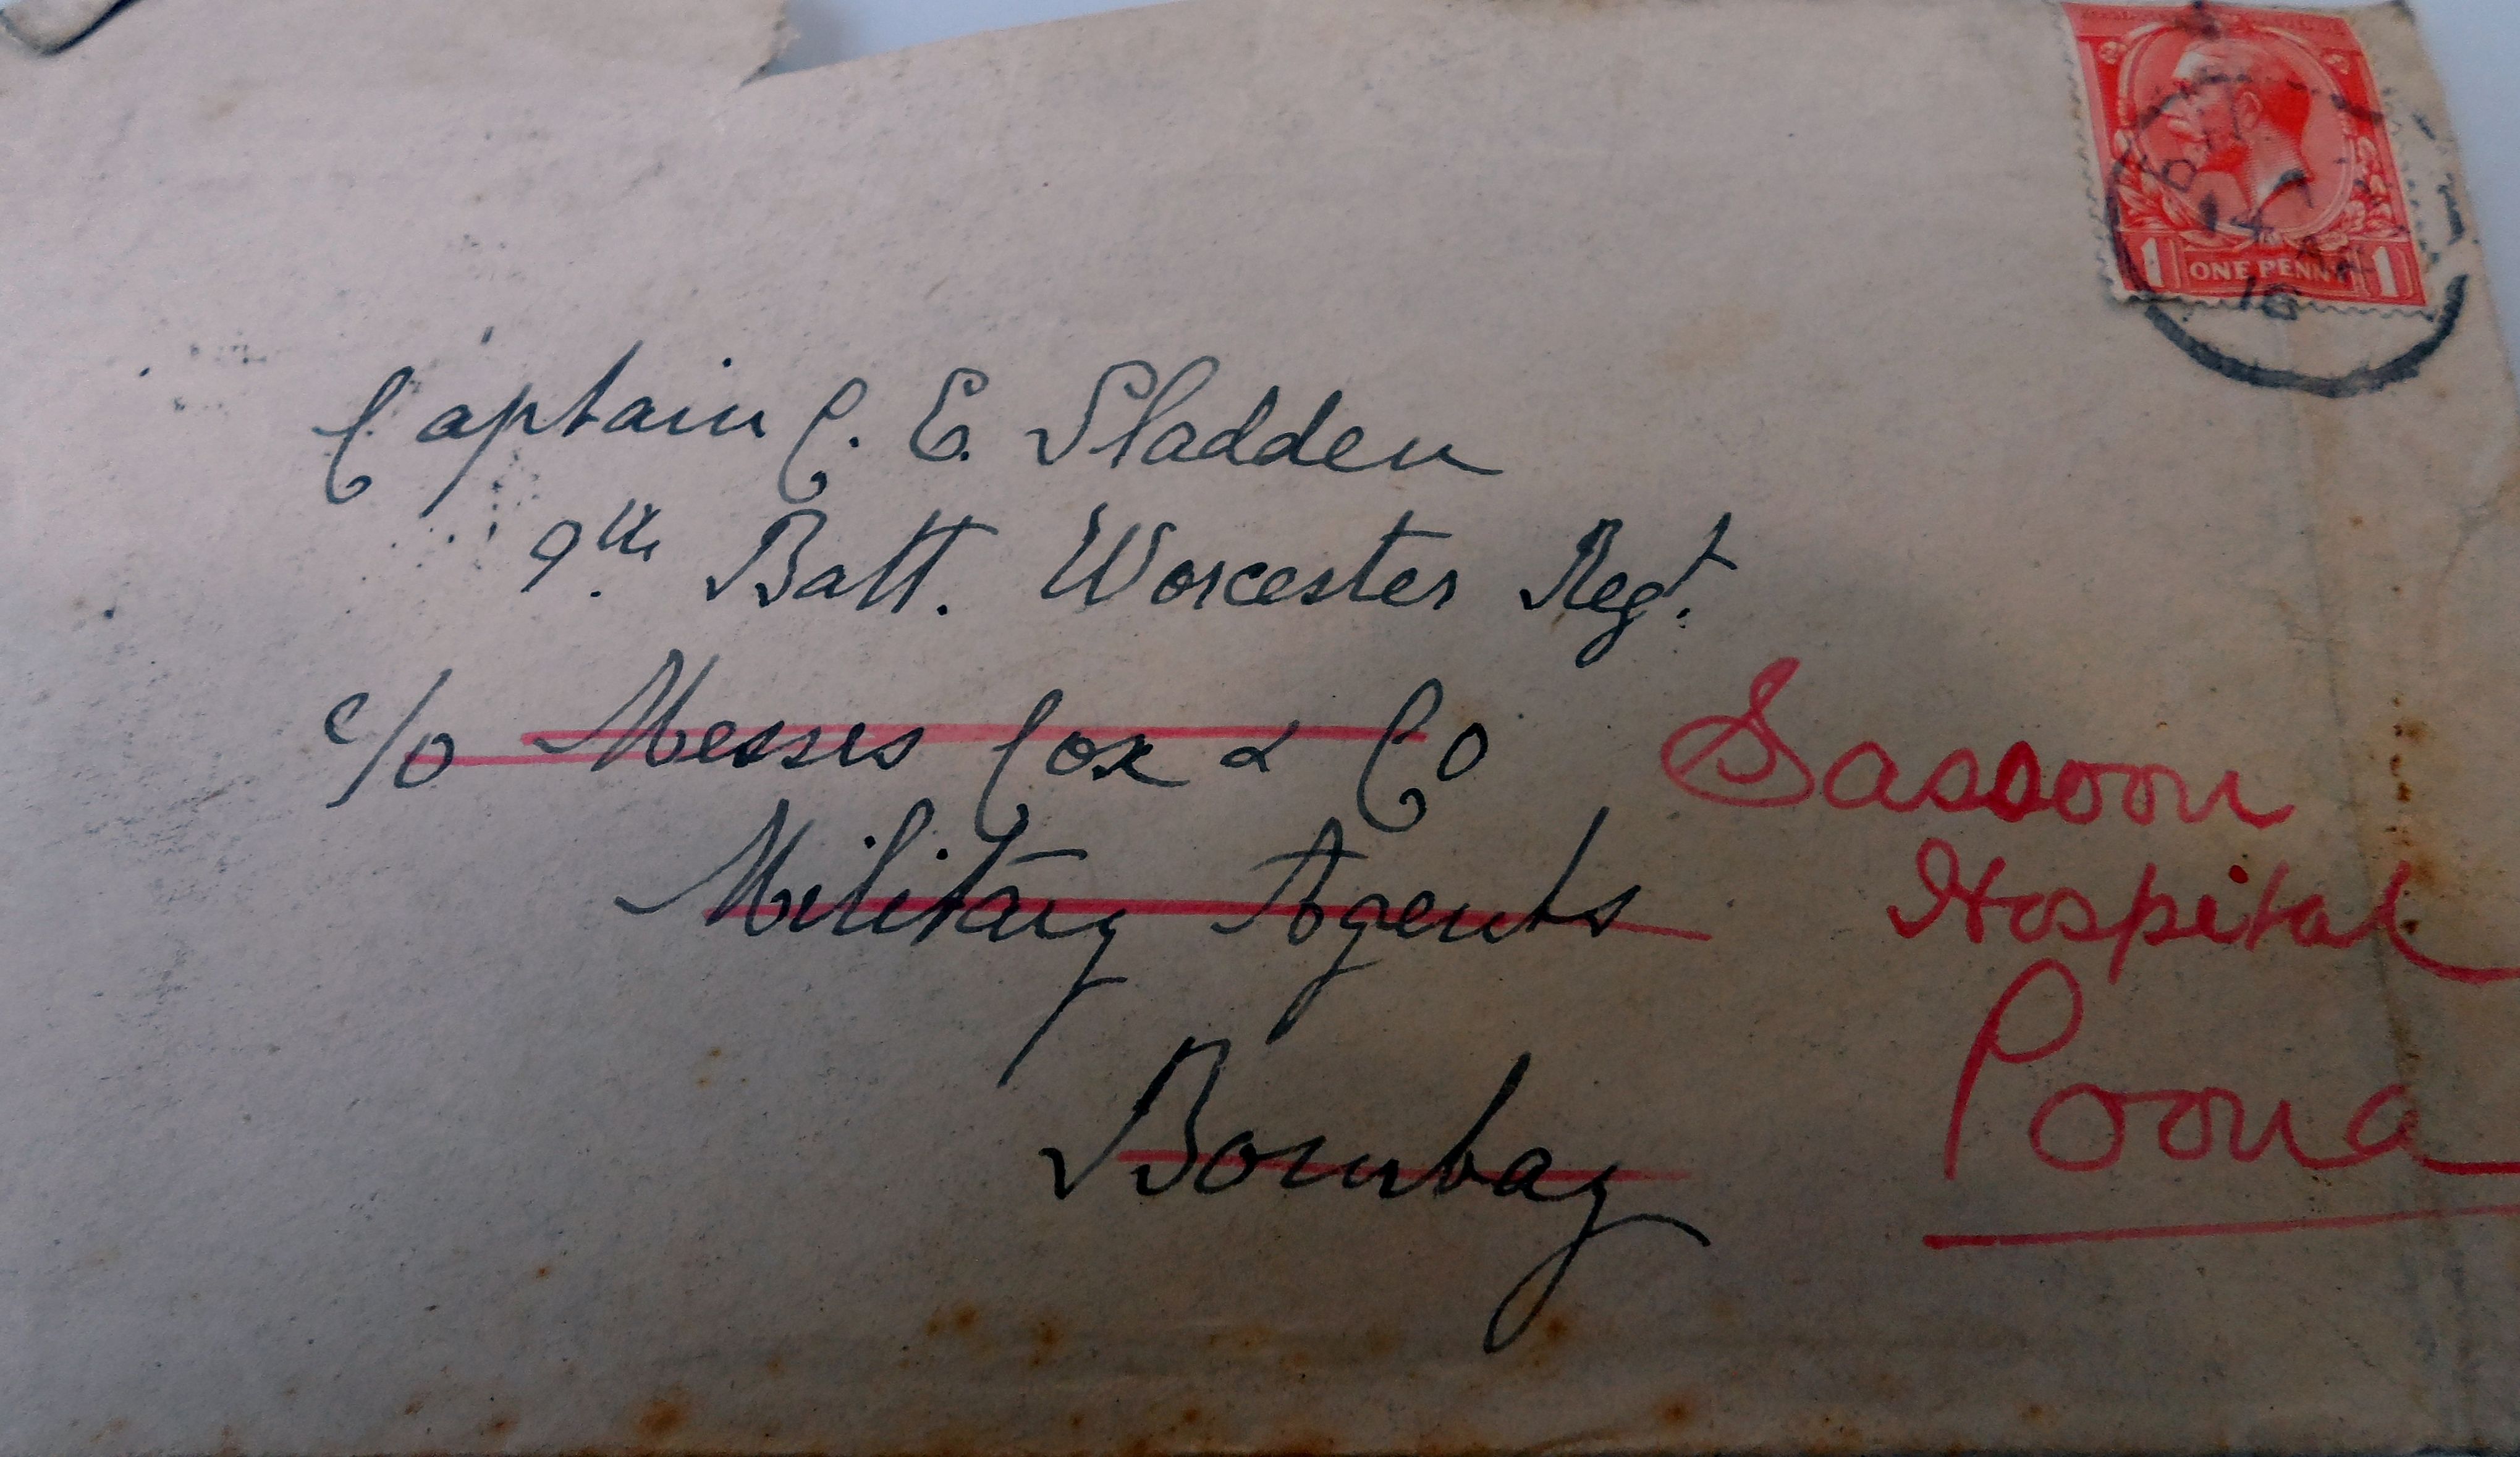 Captain C. E. Sladden
9th. Batt. Worcester Regt.
c/o Messrs Cox & Co
Military Agents
Bombay
Sassoon
Hospital
Poona
1 ONE PENNY 1
16